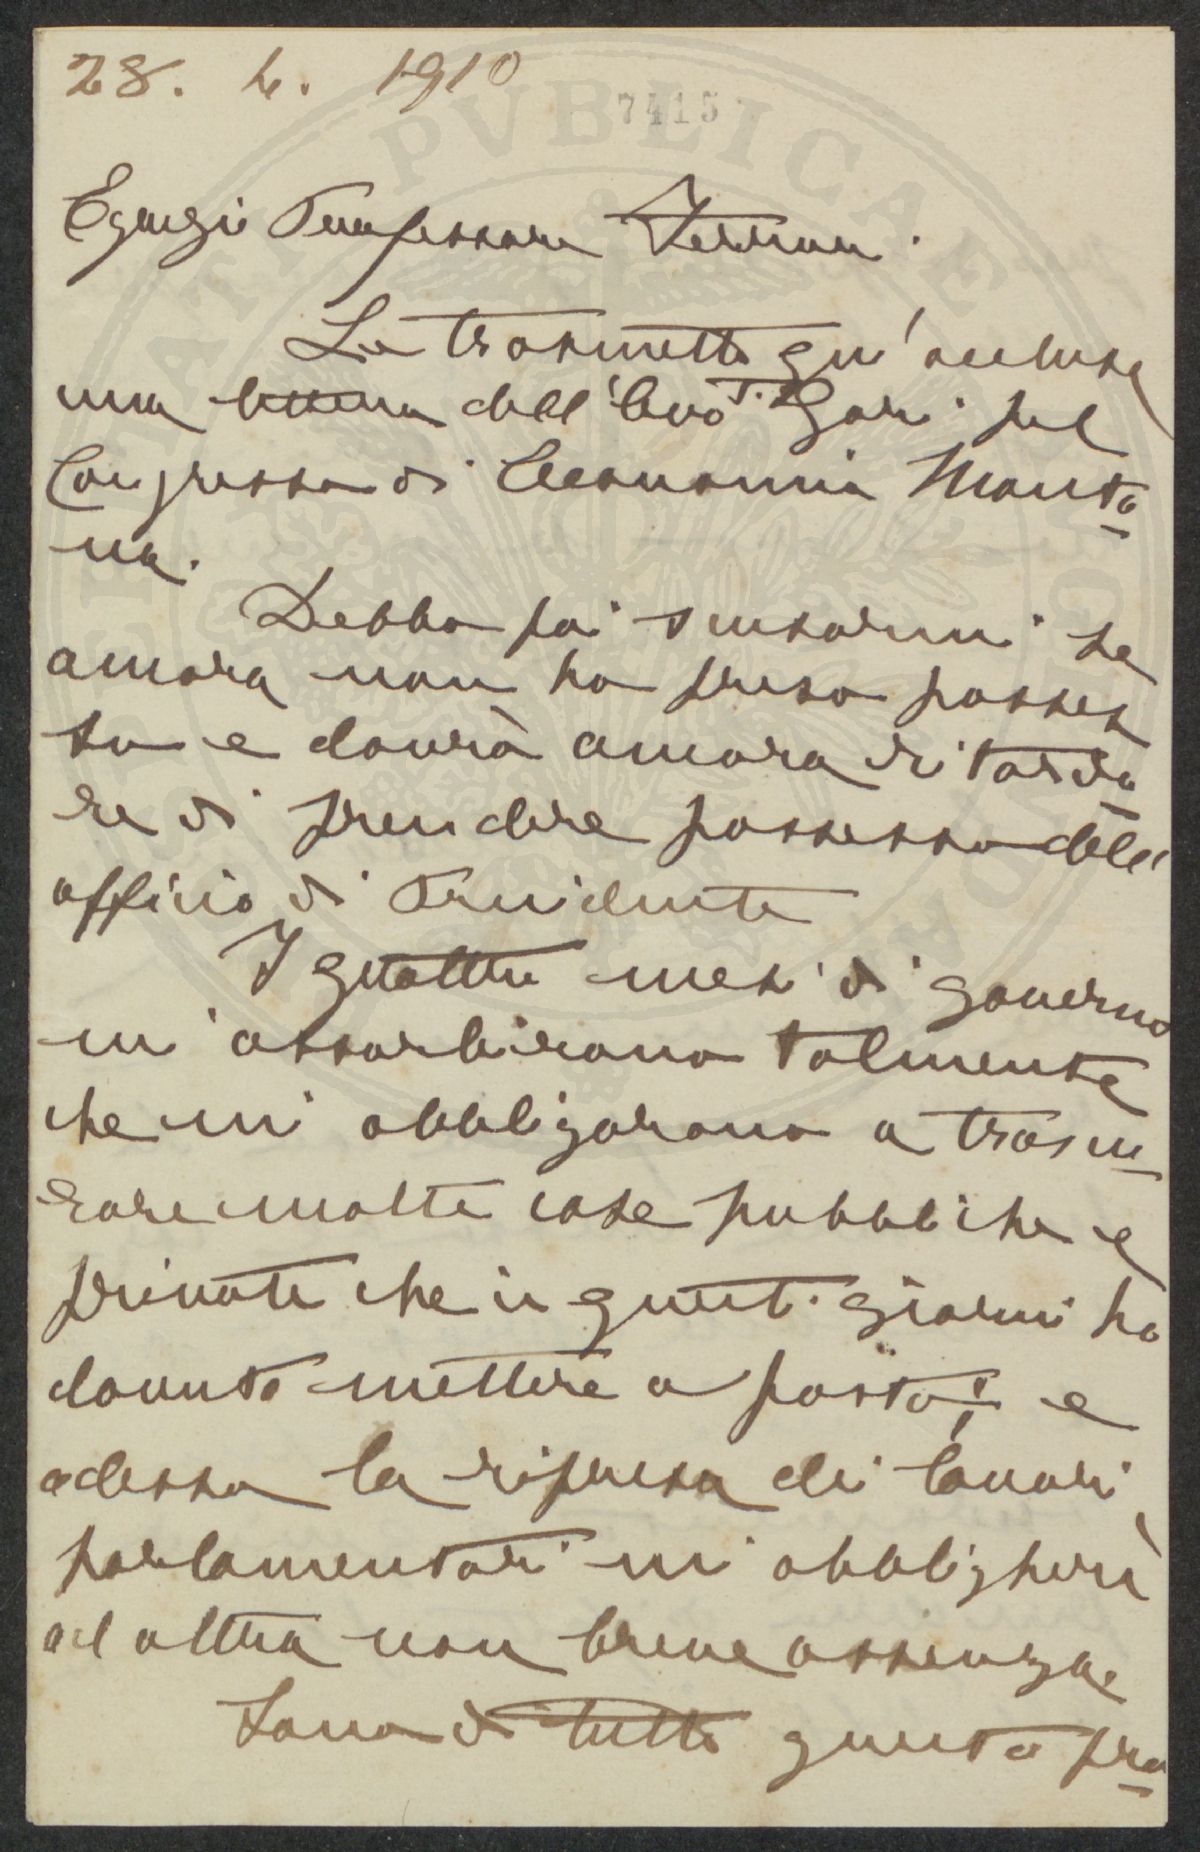 28. 4. 1910
7415
Egregio Professore Ferrari.
Le trasmetto qui acclusa
una lettera dell' Gori pel
Congresso di Economia Monta
na.
Debbo poi scusarmi se
ancora non ho preso posses
so e dovrò ancora ritarda
re di prendere possesso dell'
officio di Presidente
I quattro mesi di governo
mi assorbirono talmente
che mi obbligarono a trascu
rare molte cose pubbliche e
private che in questi giorni ho
dovuto mettere a posto; e
adesso la ripresa dei lavori
parlamentari mi obbligherà
ad altra non breve assenza
Sono di tutto questo pro